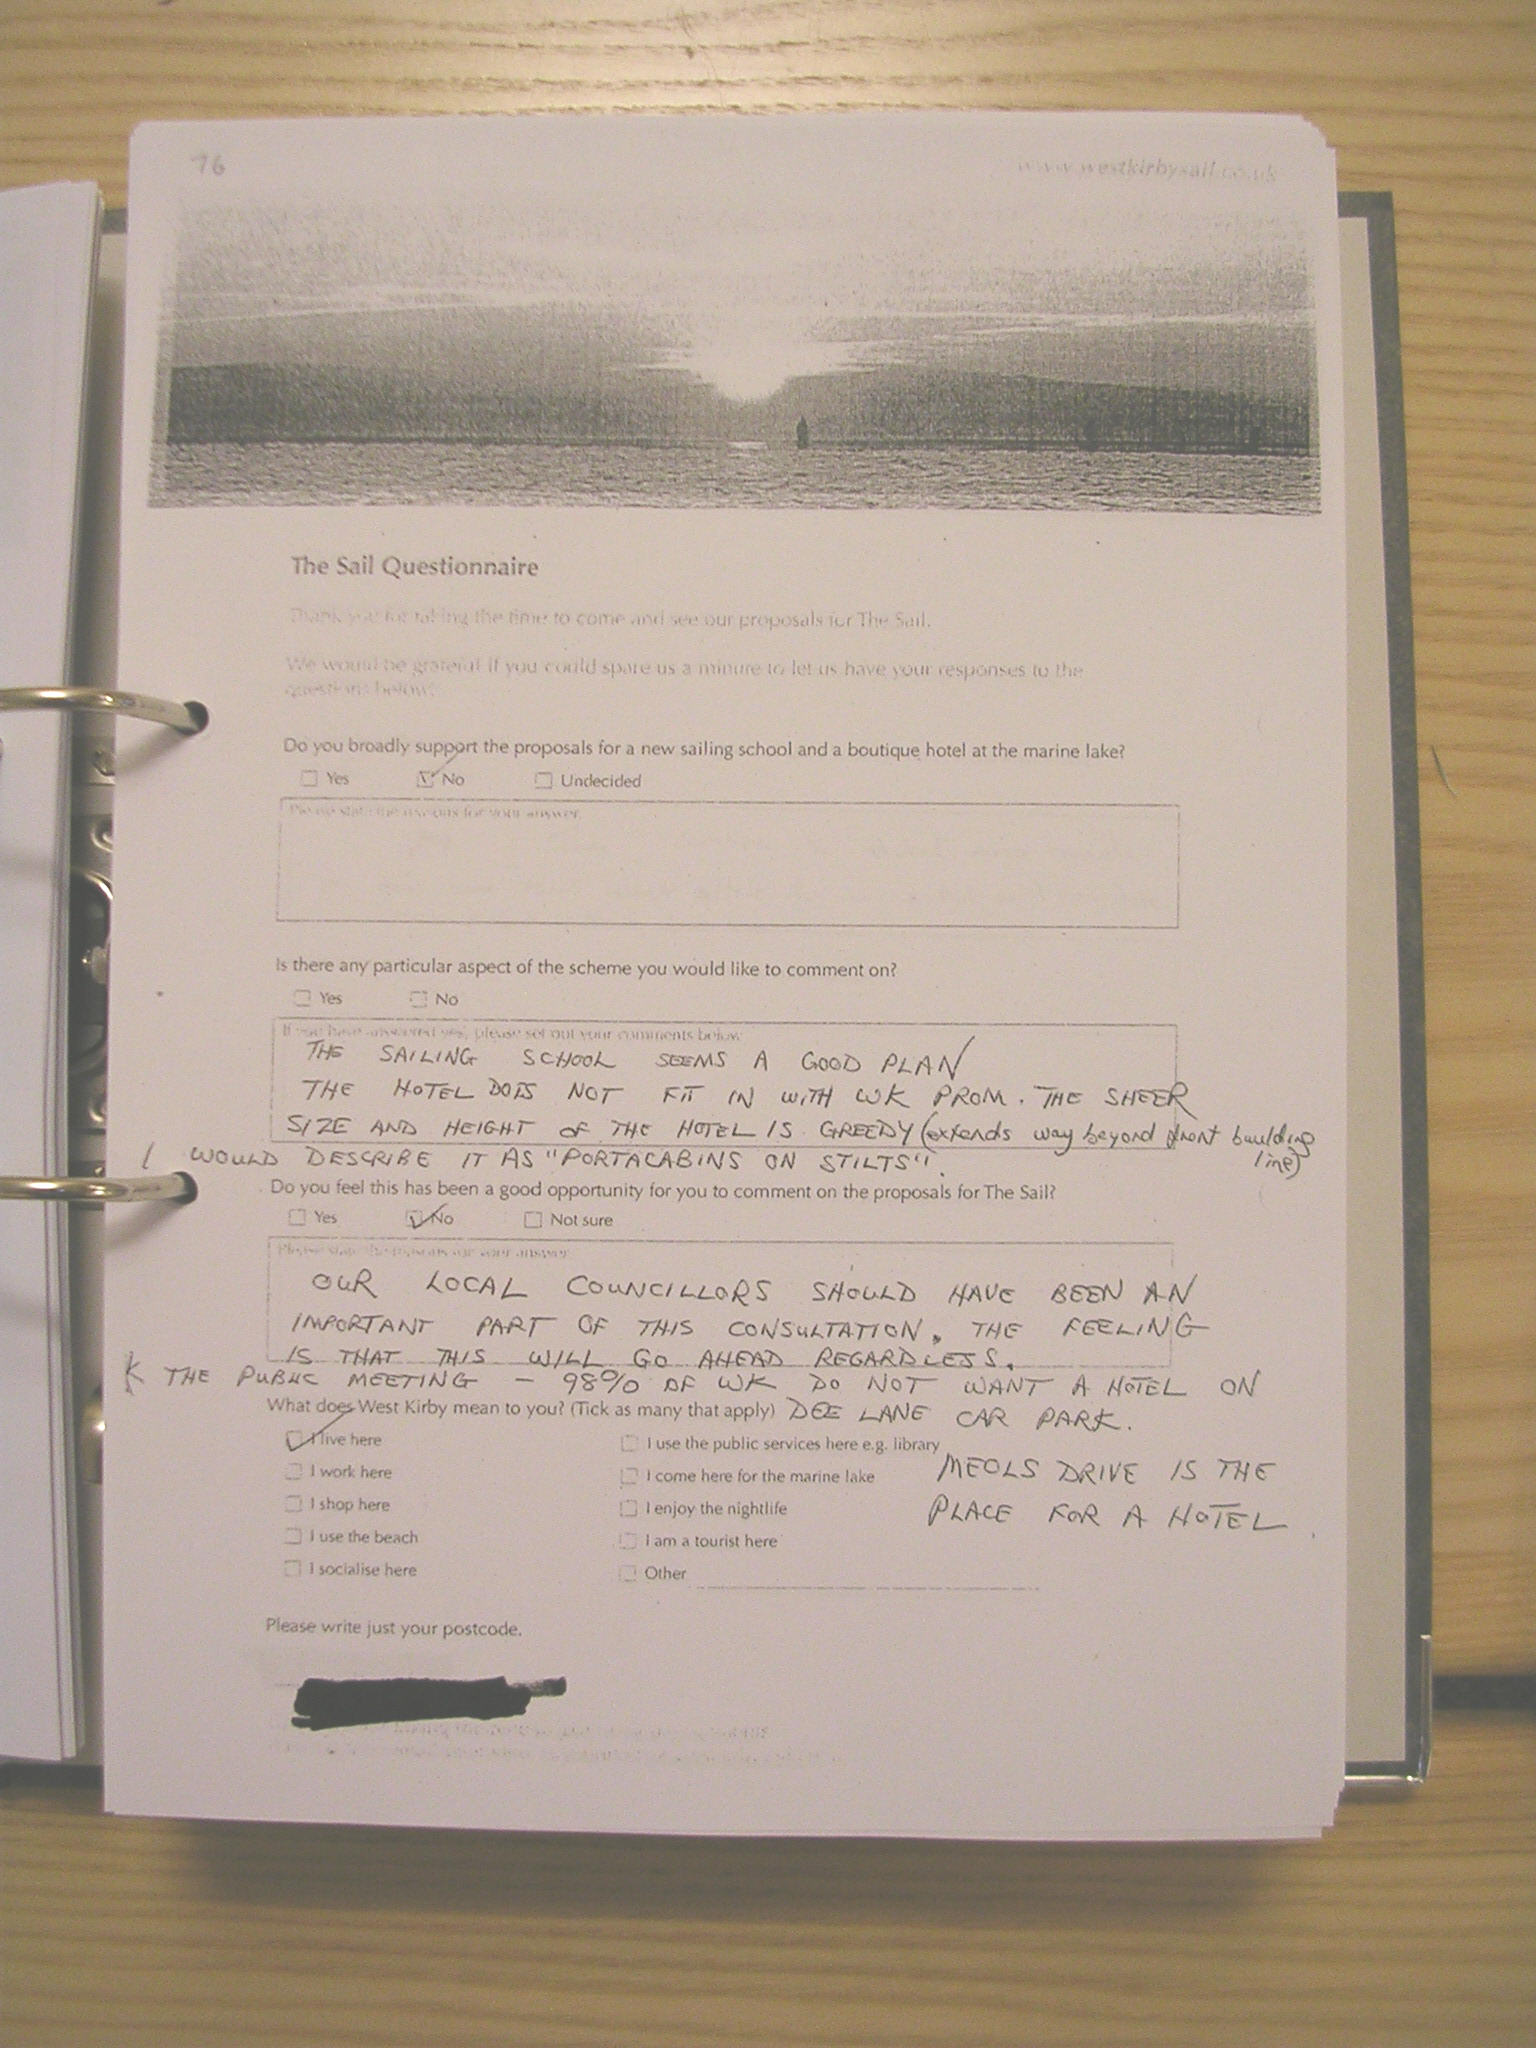 76
www.westkirbysail.co.uk
The Sail Questionnaire
Thank you for taking the time to come and see our proposals for The Sail.
We would be grateful if you could spare us a minute to let us have your responses to the
questions below:
Do you broadly support the proposals for a new sailing school and a boutique hotel at the marine lake?
Yes No Undecided
Please state the reasons for your answer
Is there any particular aspect of the scheme you would like to comment on?
Yes No
If you have answered yes, please set out your comments below
THE SAILING SCHOOL SEEMS A GOOD PLAN
THE HOTEL DOES NOT FIT IN WITH WK PROM. THE SHEER
SIZE AND HEIGHT OF THE HOTEL IS GREEDY (extends way beyond front building
line)
I WOULD DESCRIBE IT AS "PORTACABINS ON STILTS".
Do you feel this has been a good opportunity for you to comment on the proposals for The Sail?
Yes No Not sure
Please state the reasons for your answer
OUR LOCAL COUNCILLORS SHOULD HAVE BEEN AN
IMPORTANT PART OF THIS CONSULTATION. THE FEELING
IS THAT THIS WILL GO AHEAD REGARDLESS.
THE PUBLIC MEETING - 98% OF WK DO NOT WANT A HOTEL ON
What does West Kirby mean to you? (Tick as many that apply) DEE LANE CAR PARK.
I live here
I work here
I shop here
I use the beach
I socialise here
I use the public services here e.g. library
I come here for the marine lake
I enjoy the nightlife
I am a tourist here
Other
MEOLS DRIVE IS THE
PLACE FOR A HOTEL
Please write just your postcode.